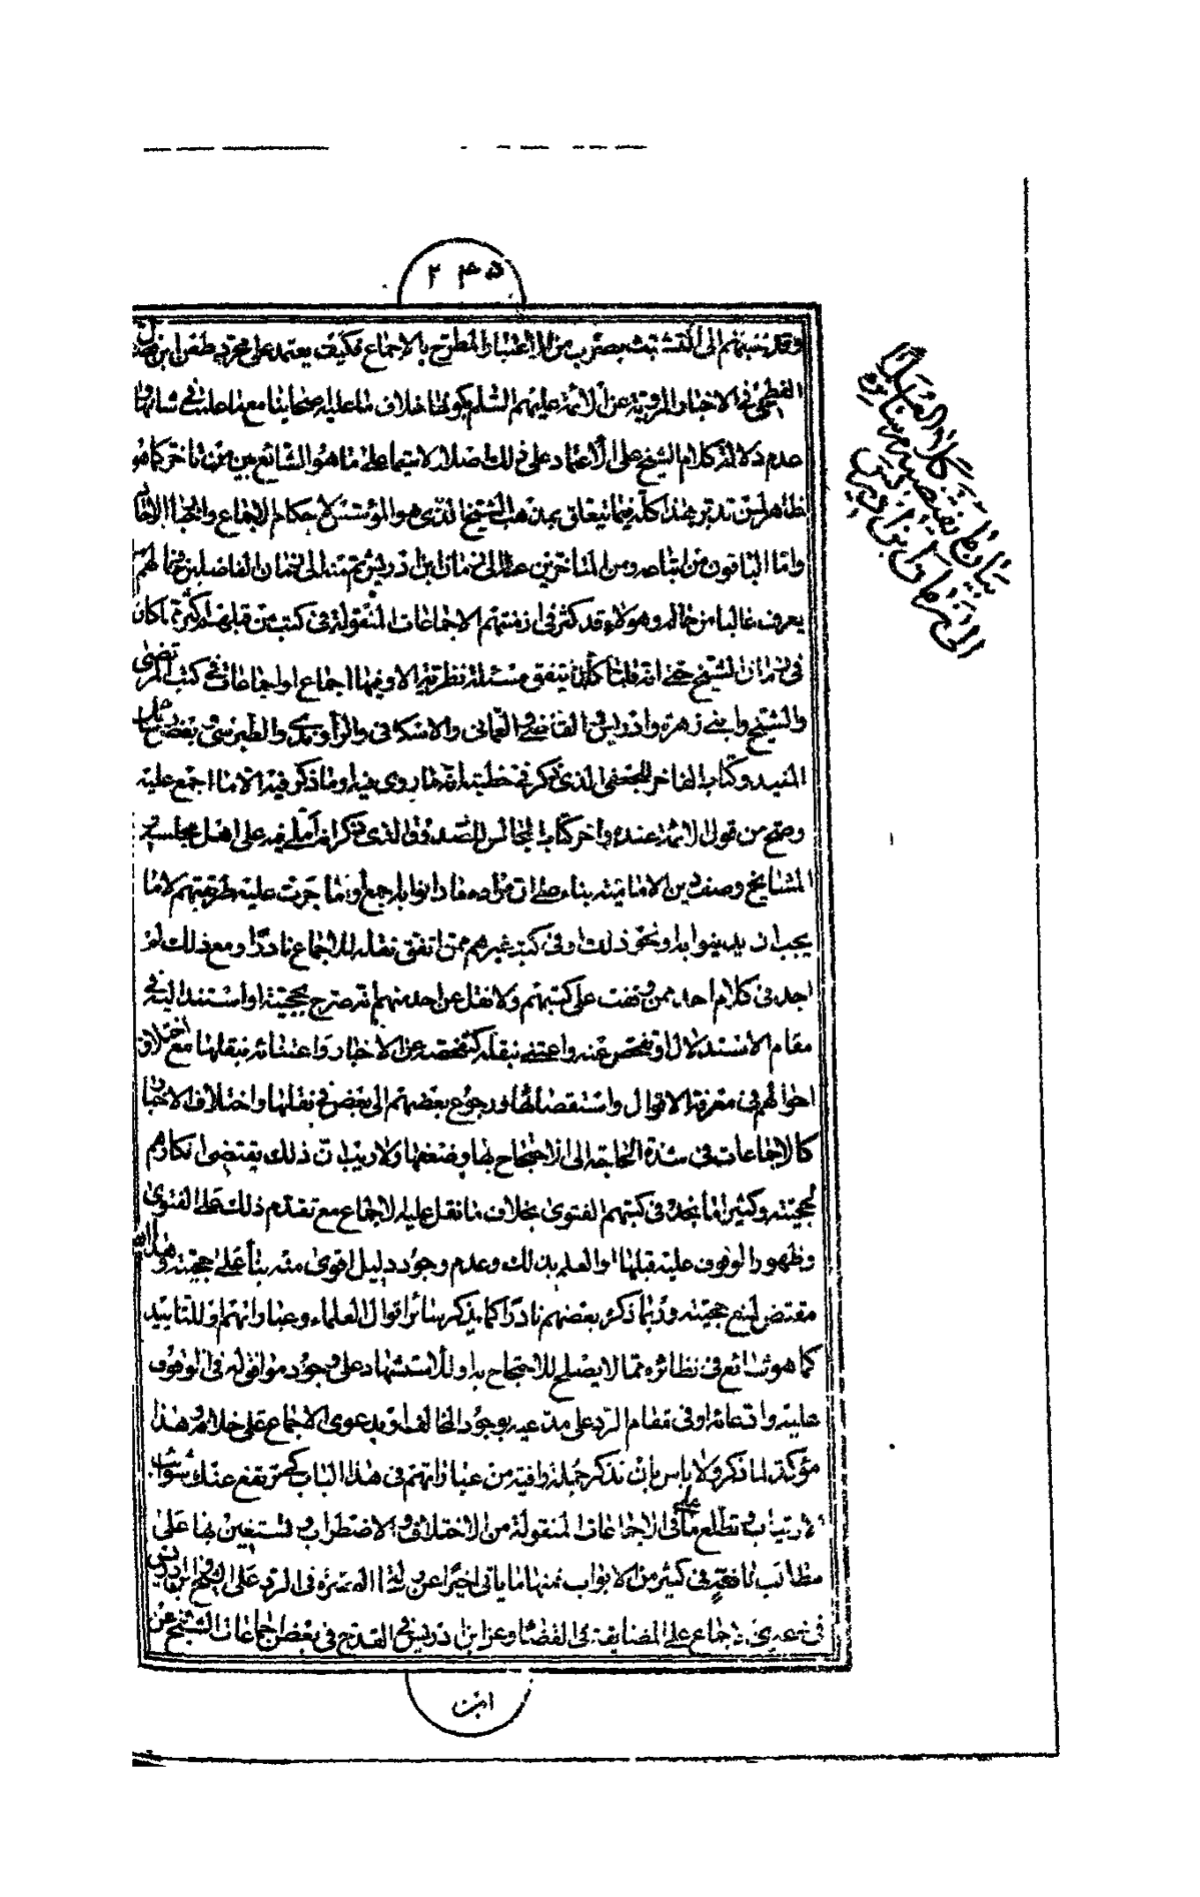 ٢٤٥
وقد نسبتهم الى التشبث بضرب من الاعتبار المطرح بالاجماع فكيف يعتمد على مجرد طعن ابن فضال
الفطحى فى الاخبار المروية عن الائمة عليهم السلم بكونها خلاف ما عليه اصحابنا مع ما علمت فى شانها و
عدم دلالة كلام الشيخ على الاعتماد على ذلك اصلا لا سيما على ما هو الشائع بين من تاخر كما هو
ظاهر لمن تدبر هذا كله فيما يتعلق بمذهب الشيخ الذى هو المؤسس لاحكام الاجماع واما
واما الباقون من اتباعه ومن المتاخرين عنه الى زمان ابن ادريس ثم منه الى زمان الفاضلين فحالهم
يعرف غالبا من حاله وهولاء قد كثر فى ازمنتهم الاجماعات المنقولة فى كتب من قبلهم اكثر مما كان
فى زمان الشيخ حتى انه قلما كان يتفق مسئلة نظرية الا وفيها اجماع او اجماعات فى كتب المرتضى
والشيخ وابنى زهرة وادريس والقاضى و العمانى والاسكافى والراوندى والطبرسى وبعض كتب
المفيد وكتاب الفاخر للجعفى الذى ذكر فى خطبته انه ما روى فيه او ما ذكر فيه الا ما اجمع عليه
وصح من قول الائمة عنده واخر كتاب المجالس للصدوق الذى ذكر انه املى فيه على اهل مجلسه و
المشايخ وصف دين الامامية بناء على ان مراده ما دانوا به اجمع او ما جرت عليه طريقتهم لا ما
يجب ان يدينوا به او نحو ذلك او فى كتب غيرهم ممن اتفق نقله للاجماع نادرا ومع ذلك لم
اجد فى كلام احد ممن وقفت على كتبهم ولا نقل عن احد منهم انه صرح بحجيته او استند اليه فى
مقام الاستدلال او تفحص عنه واعتنى بنقله كتفحصه عن الاخبار واعتنائه بنقلها مع اختلاف
احوالهم فى معرفة الاقوال واستقصائها ورجوع بعضهم الى بعض فى نقلها واختلاف الاخبار
كالاجماعات فى شدة الحاجة الى الاحتجاج بها وضعفها ولا ريب ان ذلك يقتضى انكارهم
لحجيته وكثيرا ما نجد فى كتبهم الفتوى بخلاف ما نقل عليه الاجماع مع تقدم ذلك على الفتوى
وظهور الوقوف عليه قبلها او العلم بذلك وعدم وجود دليل اقوى منه بناء على حجيته وهذا
مقتض لمنع حجيته وربما ذكره بعضهم نادرا كما يذكر سائر اقوال العلماء وعباراتهم او للتاييد
كما هو شائع فى نظائره مما لا يصلح للاحتجاج به او للاستشهاد على وجود موافق له فى الوقوف
عليه وادعائه او فى مقام الرد على مدعيه بوجود المخالف او بدعوى الاجماع على خلافه وهذا
مؤكد لما ذكر ولا باس بان نذكر جملة وافية من عباراتهم فى هذا الباب كى يرتفع عنك شوائب
الارتياب وتطلع على ما فى الاجماعات المنقولة من الاختلاف و الاضطراب وتستعين بها على
مطالب نافعة فى كثير من الابواب فمنها ما ياتى اخيرا عن فى الرد على
فى دعوى الاجماع على المضايقة فى القضاء وعن ابن ادريس فى القدح فى بعض اجماعات الشيخ
ابن
بيان بقية كلام العلماء
الى زمان ابن ادريس